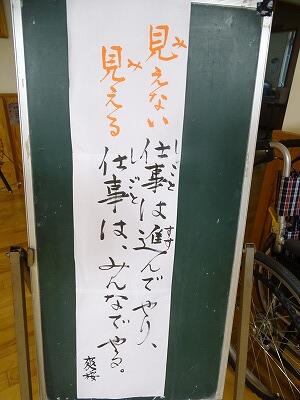 見えない仕事は進んでやり、
見える仕事は、みんなでやる。